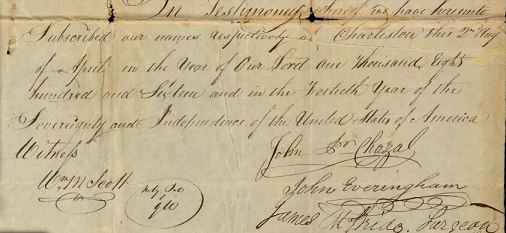 In Testimony whereof we have hereunto
Subscribed our names respectively at Charleston this 2nd Day
of April in the Year of Our Lord one thousand Eight
hundred and Sixteen and in the Fortieth Year of the
Sovereignty and Independence of the United States of America
Witness
John Pr Chazal
Wm M Scott
John Everingham
James Surgeon